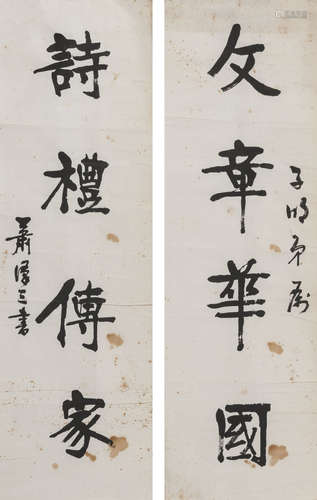 文章華國
子明弟屬
詩禮傳家
蕭澤三書